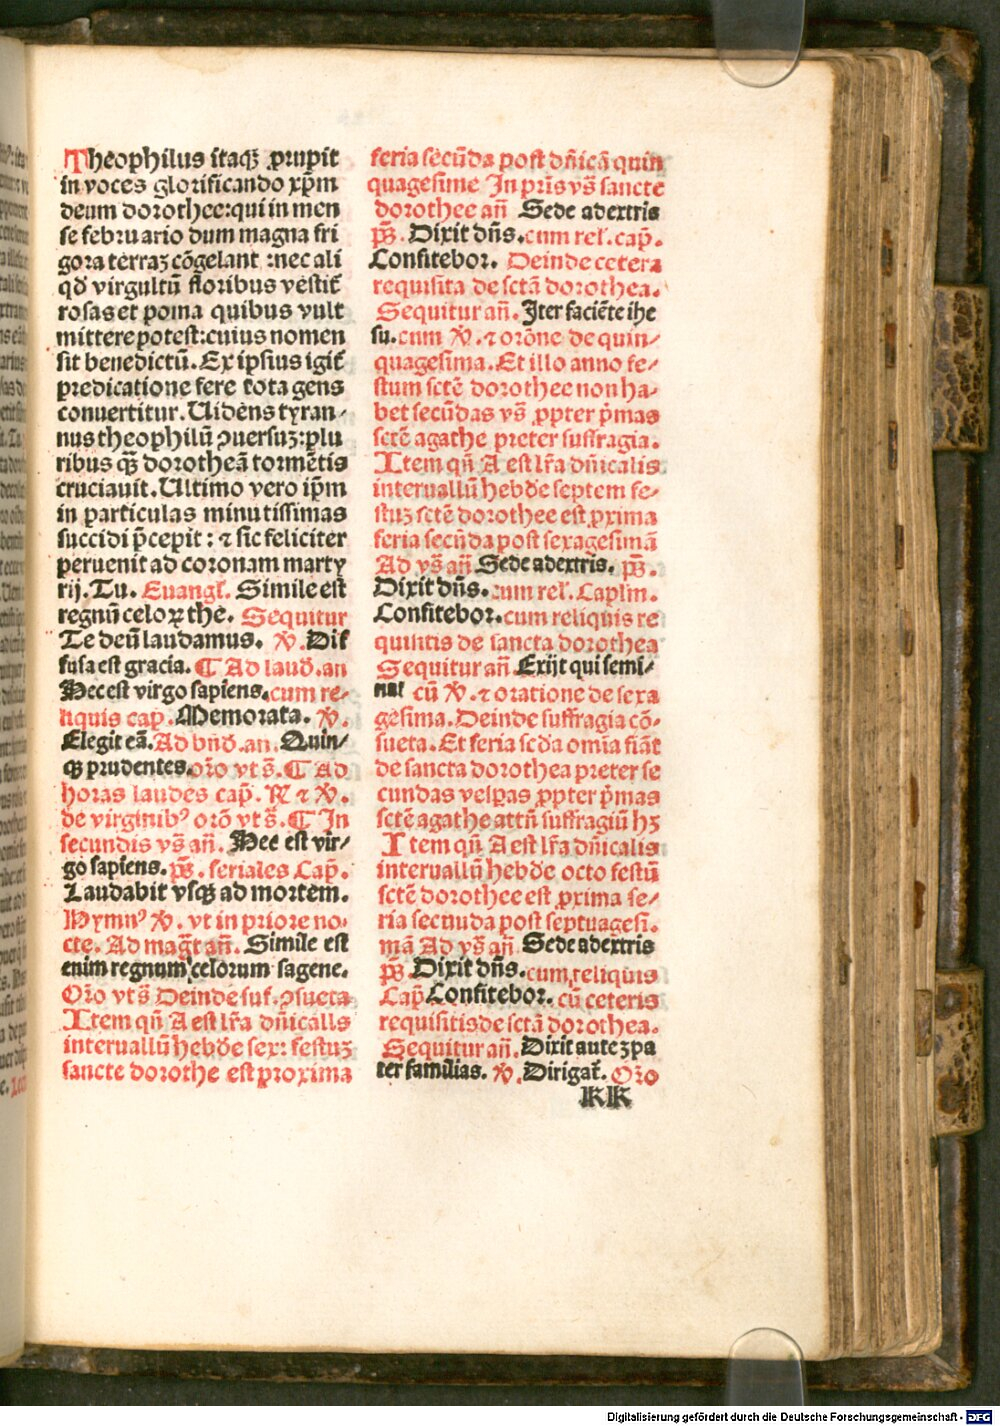 Theophilus itaqꝫ prupit
in voces glorificando xp̄m
deum dorothee:qui in men
se februario dum magna fri
gora terraꝫ cōgelant :nec ali
qd̛ virgultū floribus vestit̄
rosas et poma quibus vult
mittere potest:cuius nomen
sit benedictū. Ex ipsius igit̄
predicatione fere tota gens
conuertitur. Uidens tyran⸗
nus theophilū ꝯuersuꝫ:plu
ribus qꝫ dorotheā tormētis
cruciauit. Ultimo vero ip̄m
in particulas minutissimas
succidi p̄cepit: ⁊ sic feliciter
peruenit ad coronam marty
rij. Tu. Euangl̄. Simile est
regnū celoꝝ the. Sequitur
Te deū laudamus. ℣. Dif
fusa est gracia. ¶ Ad laud̄. an
Hec est virgo sapiens. cum re⸗
liquis cap̄. Memorata. ℣.
Elegit eā. Ad bn̄d̄. an. Quin⸗
qꝫ prudentes. or̄o vt s̄. ¶ Ad
horas laudes cap̄. R ⁊ ℣.
de virginibꝰ orō vt s̄. ¶ In
secundis vs̄ an̄. Hec est vir⸗
go sapiens. ps̄. feriales Cap̄.
Laudabit vsqꝫ ad mortem.
Hymnꝰ ℣. vt in priore no⸗
cte. Ad maḡt an̄. Simile est
enim regnum celorum sagene.
Or̄o vt s̄ Deinde suf. ꝯsueta
Item qn̄ A est lr̄a dn̄icalls
interuallū hebd̄e sex: festuꝫ
sancte dorothe est proxima
feria secūda post dn̄icā quin
quagesime In pr̄is vs̄ sancte
dorothee an̄ Sede a dextris
ps̄. Dixit dn̄s. cum rel̄. cap̄.
Confitebor. Deinde cetera
requisita de sctā dorothea.
Sequitur an̄. Iter faciēte ihe
su. cum ℣. ⁊ orōne de quin⸗
quagesima. Et illo anno fe⸗
stum sctē dorothee non ha⸗
bet secūdas vs̄ ꝓpter p̄mas
sctē agathe preter suffragia.
Item qn̄ A est lr̄a dn̄icalis
interuallū hebd̄e septem fe⸗
stuꝫ sctē dorothee est ꝓxima
feria secūda post sexagesimā
Ad vs̄ an̄ Sede a dextris. ps̄.
Dixit dn̄s. cum rel̄. Caplm̄.
Confitebor. cum reliquis re
quisitis de sancta dorothea
Sequitur an̄ Exijt qui semi⸗
nat cū ℣. ⁊ oratione de sexa
gesima. Deinde suffragia cō⸗
sueta. Et feria scd̄a om̄ia fiāt
de sancta dorothea preter se
cundas vesp̄as ꝓpter p̄mas
sctē agathe attn̄ suffragiū hꝫ
Item qn̄ A est lr̄a dn̄icalis
interuallū hebd̄e octo festū
sctē dorothee est ꝓxima fe⸗
ria secnuda post septuagesi⸗
mā Ad vs̄ an̄ Sede a dextris
ps̄ Dixit dn̄s. cum reliquis
Cap̄ Confitebor. cū ceteris
requisitis de sctā dorothea.
Sequitur an̄. Dixit auteꝫ pa
ter familias. ℣. Dirigat̄. Or̄o
kk
Digitalisierung gefördert durch die Deutsche Forschungsgemeinschaft - DFG